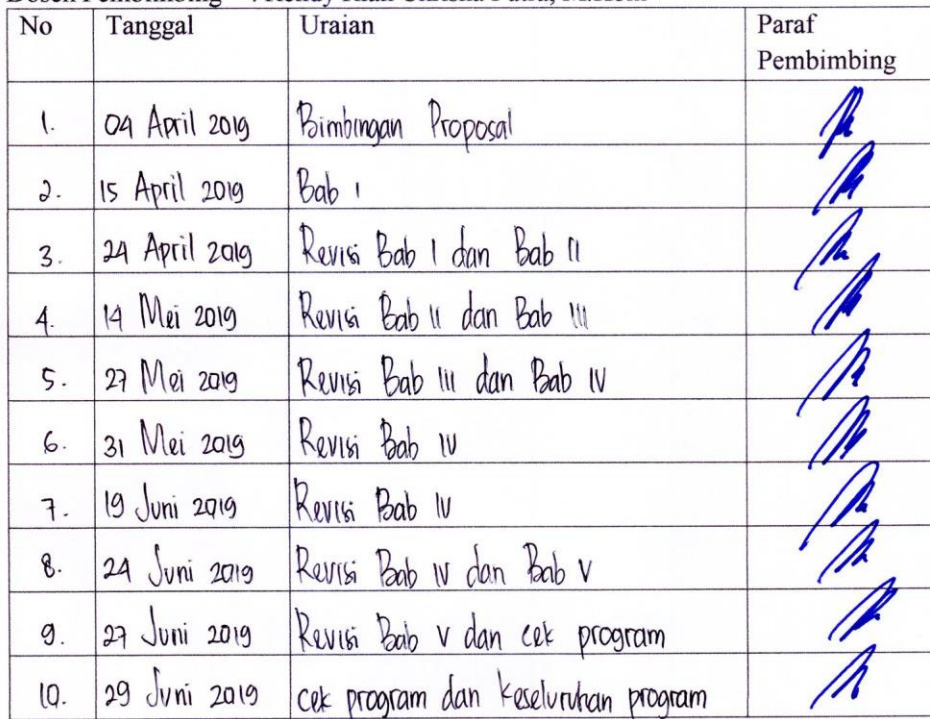 No Tanggal Uraian Paraf
Pembimbing
1. 04 April 2019 Bimbingan Proposal
2. 15 April 2019 Bab I
3. 24 April 2019 Revisi Bab I dan Bab II
4. 14 Mei 2019 Revisi Bab II dan Bab III
5. 27 Mei 2019 Revisi Bab III dan Bab IV
6. 31 Mei 2019 Revisi Bab IV
7. 19 Juni 2019 Revisi Bab IV
8. 24 Juni 2019 Revisi Bab IV dan Bab V
9. 27 Juni 2019 Revisi Bab V dan cek program
10. 29 Juni 2019 cek program dan keseluruhan program